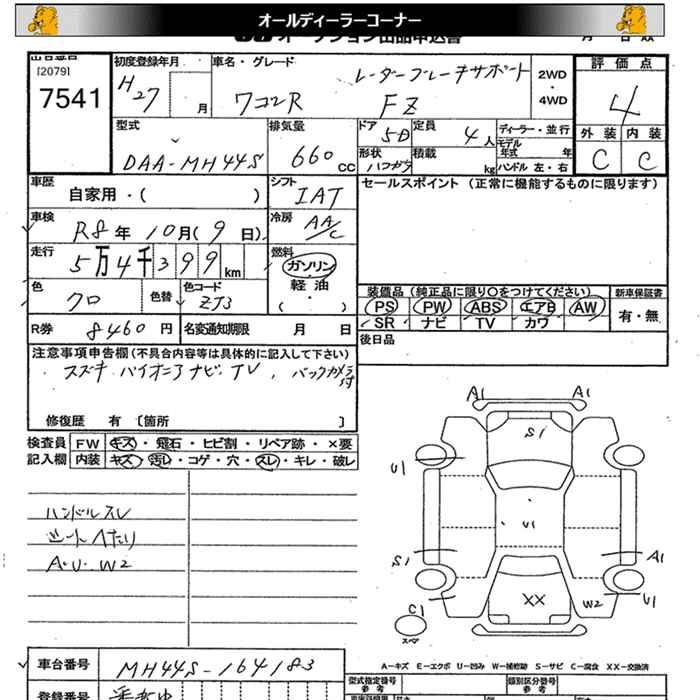 オールディーラーコーナー
オークション出品申込書
出品番号
[2079]
7541
初度登録年月
H27 月
車名・グレード
レーダーブレーキサポート
ワゴンR FZ
2WD
・
4WD
評価点
4
外装 内装
C C
型式
DAA-MH44S
排気量
660 CC
ドア 5D
定員 4人
形状
積載 kg
ディーラー・並行
モデル年式 年
ハンドル 左・右
車歴
自家用・( )
シフト
IAT
セールスポイント (正常に機能するものに限ります)
車検
R8年10月(9日)
冷房
AA/C
走行
5万4千399km
燃料
ガソリン
軽油
( ・ )
色
クロ
色替
色コード
ZJ3
装備品 (純正品に限り○をつけてください)
PS PW ABS エアB AW
SR ナビ TV カワ
新車保証書
有・無
後日品
R券 8460円
名変通知期限 月 日
注意事項申告欄(不具合内容等は具体的に記入して下さい)
スズキ パイオニアナビ、TV、バックカメラ付
修復歴 有 [箇所 ]
検査員
記入欄
FW キズ・飛石・ヒビ割・リペア跡・×要
内装 キズ・汚レ・コゲ・穴・スレ・キレ・破レ
ハンドルスレ
シートヘたり
A・U・W2
A1 A1
S1
U1
U1
S1 A1
XX W2 U1
C1
スペア
A-キズ E-エクボ U-凹み W-補修跡 S-サビ C-腐食 XX-交換済
車台番号
MH44S-164183
型式指定番号
参考
類別区分番号
参考
登録番号